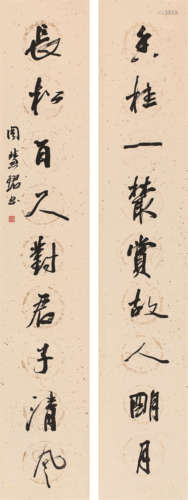 香桂一丛賞故人明月
長松百尺對君子清風
周慧珺書